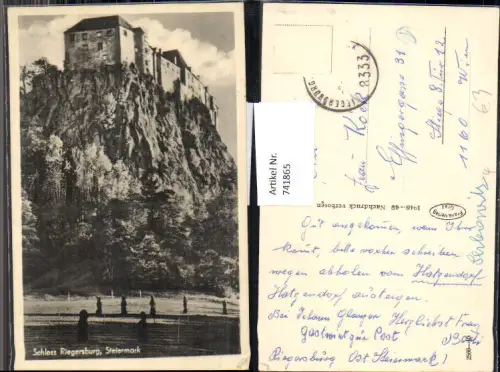 Schloss Riegersburg, Steiermark
Artikel Nr.
741865
RIEGERSBURG
8333
Frau Koch
Effingergasse 31
Stiege 8 Tür 12
1160 Wien
63
1948-49 Nachdruck verboten
Gut angekommen, wenn Ihr
kommt, bitte vorher schreiben
wegen abholen vom Hatzendorf
Hatzendorf aussteigen.
Bei Johann Herzlichst Franz
Gastwirt zur Post
Riegersburg Ost Steiermark